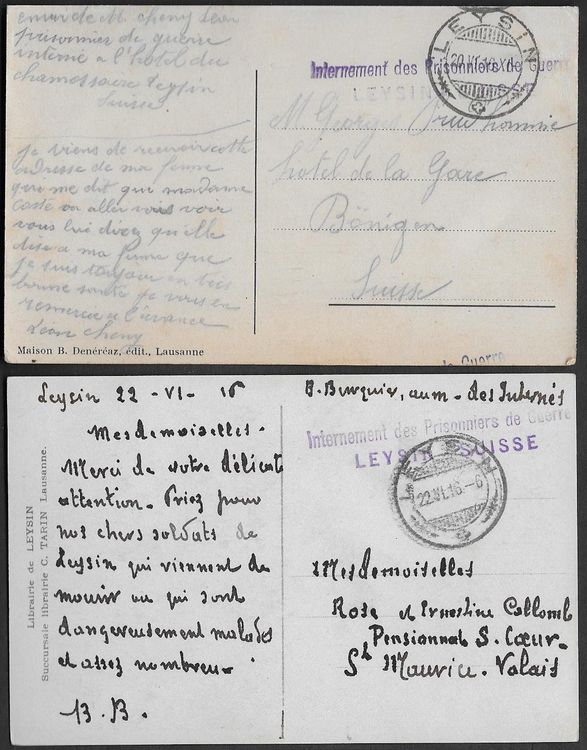 envoi de M. Cheny Léon
prisonnier de guerre
interné a l'hôtel du
chamossaire Leysin
Suisse
je viens de recevoir cette
adresse de ma femme
qui me dit qui madame
Caste va aller vous voir
vous lui direz qu'elle
dise a ma femme que
je suis toujour en très
bonne santé je vous en
remercie a l'avance
Léon Cheny
Maison B. Denéréaz, édit., Lausanne
LEYSIN
20.VI.16.XI
Internement des Prisonniers de Guerre
LEYSIN SUISSE
M Georges
hotel de la Gare
Bönigen
Suisse
de Guerre
Leysin 22 - VI - 16
B. Bourquier, aum - des Internés
Mesdemoiselles -
Merci de votre délicate
attention - Priez pour
nos chers soldats de
Leysin qui viennent de
mourir ou qui sont
dangereusement malades
et assez nombreux -
B. B.
Librairie de LEYSIN
Succursale librairie C. TARIN Lausanne.
Internement des Prisonniers de Guerre
LEYSIN SUISSE
LEYSIN
22.VI.16.-6
Mesdemoiselles
Rose et Ernestine Collomb
Pensionnat S. Cœur -
St Maurice. Valais